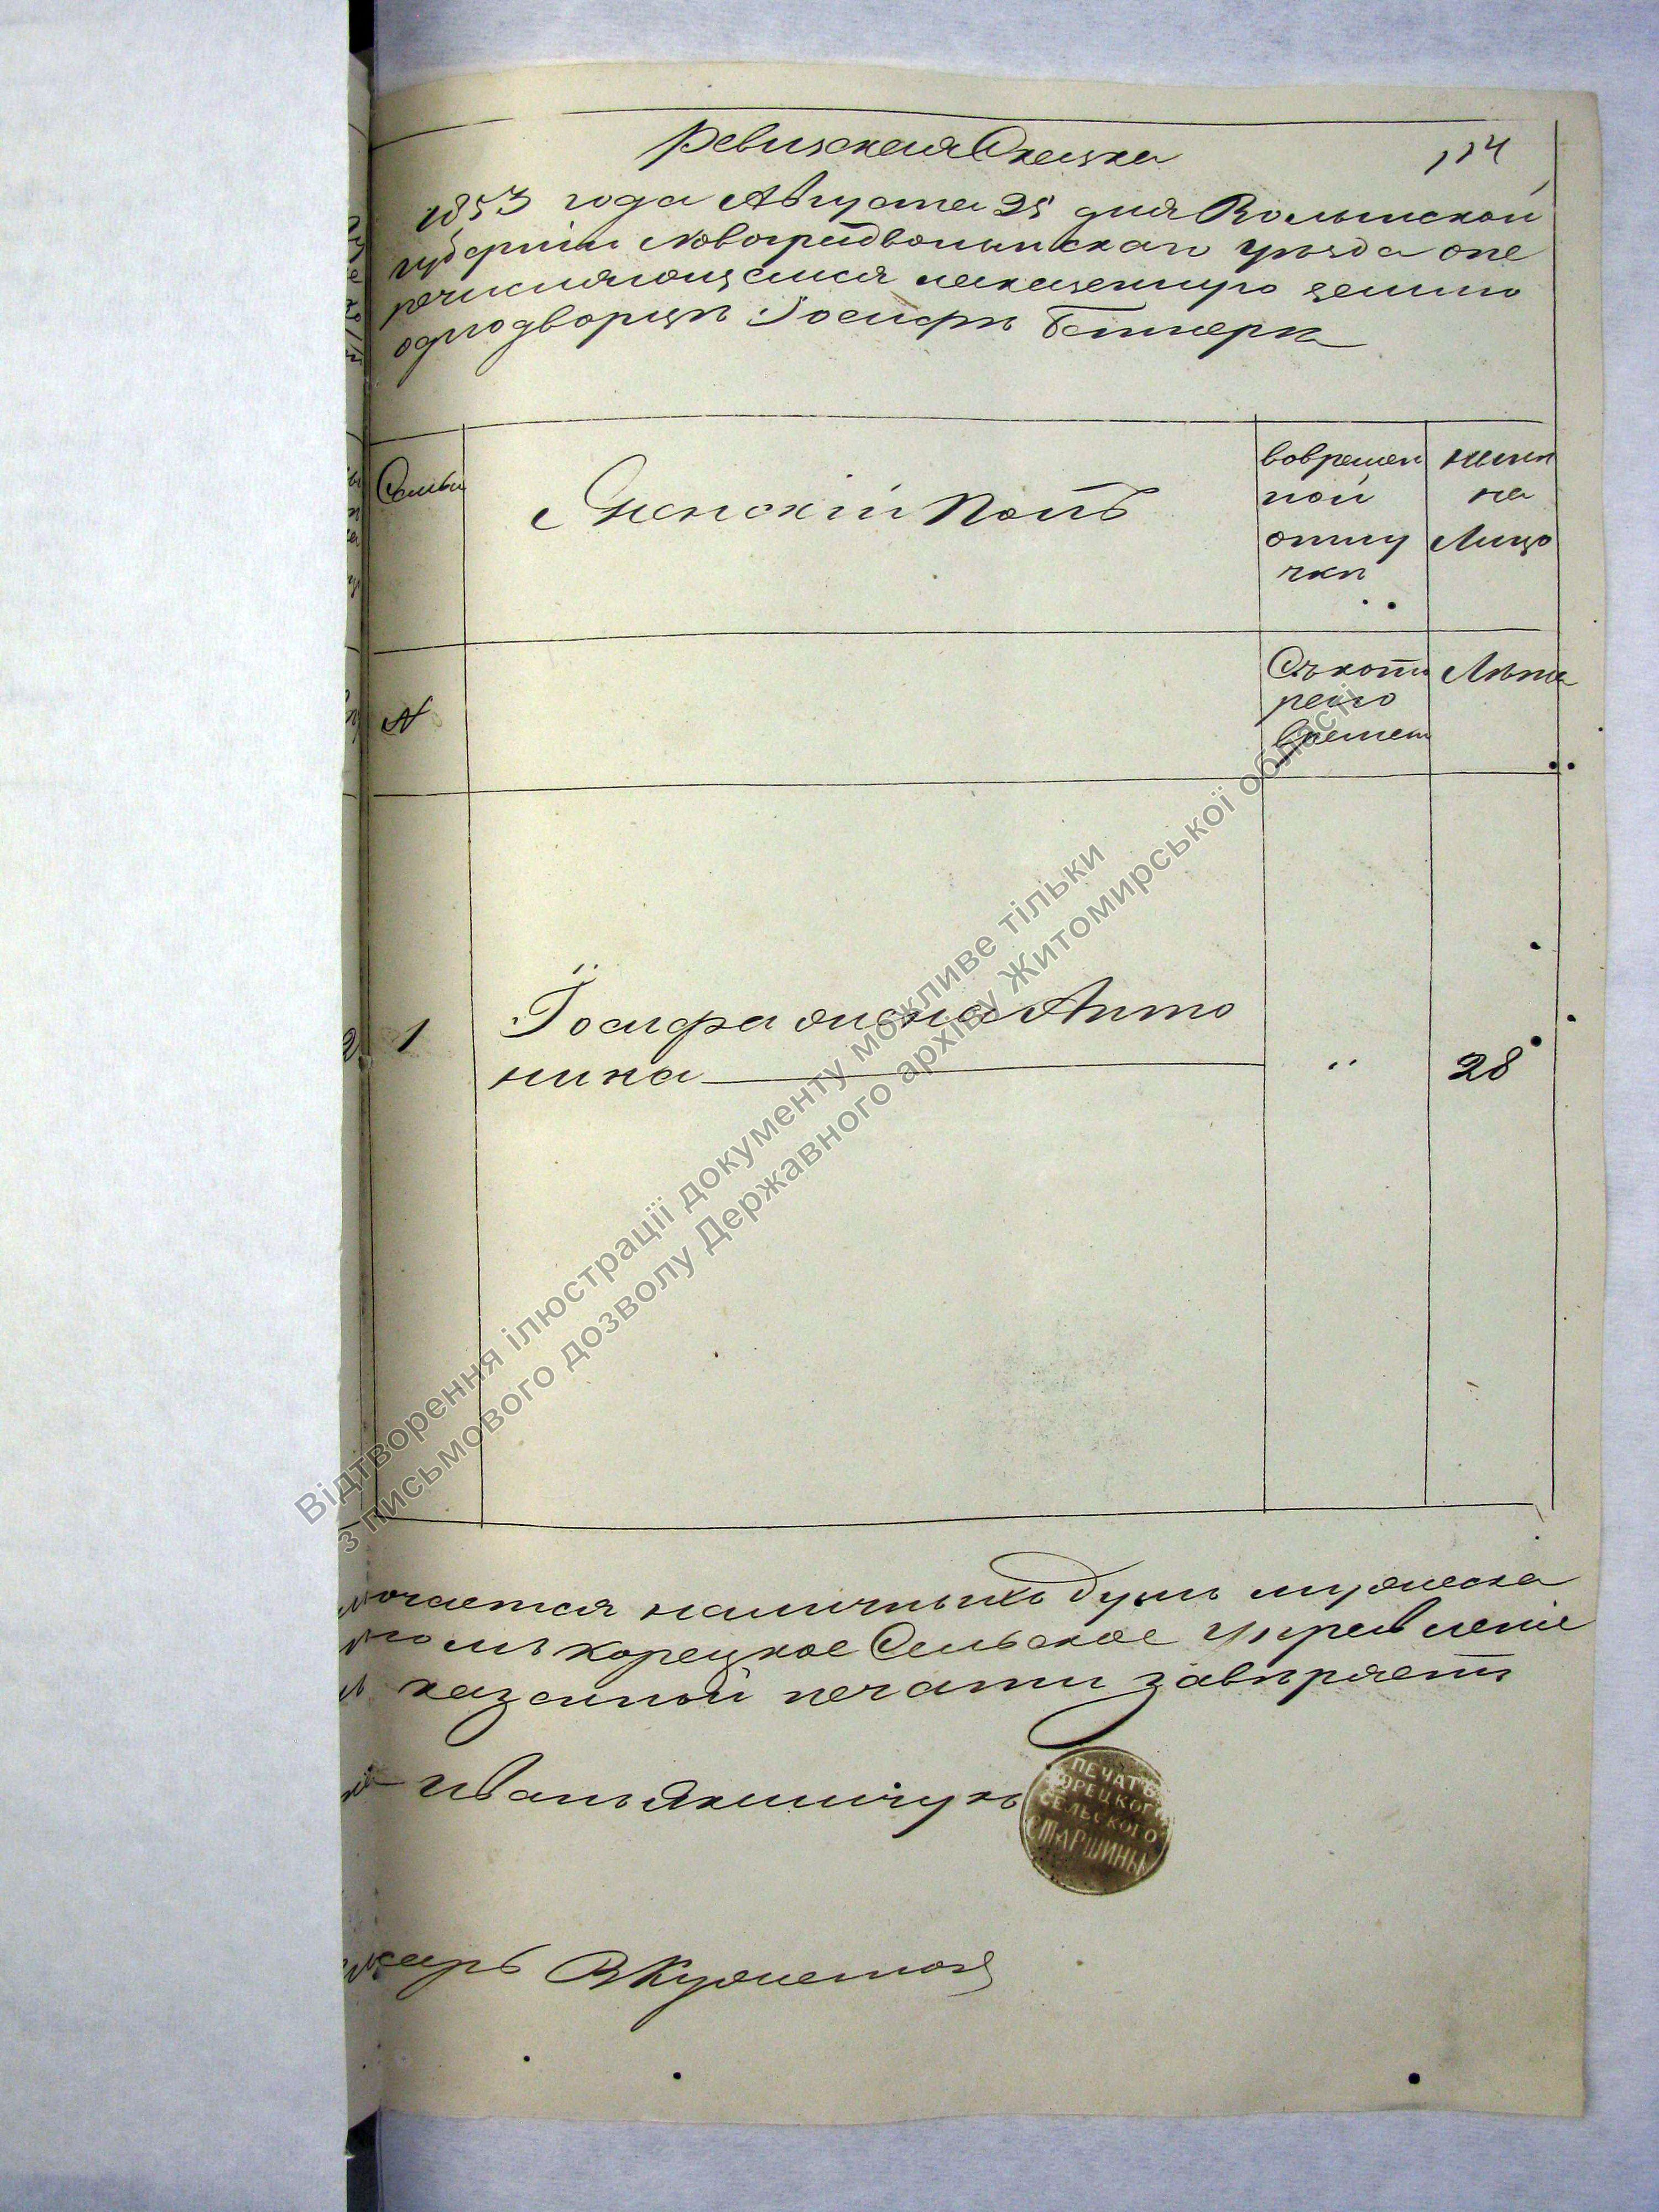 Ревизская Сказка
114
1853 года Августа 25 дня Волынской
губернiи Новоградволынскаго уезда опе
речисляющемся на казенную землю
одно дворце Iосифе
Семьи
Женскiй Полъ
вовремен
ной
отлу
чке
ныне
на
Лицо
N
Съ кото
раго
времени
Лета
1
Iосифа жена Анто
нина
"
28
наличныхъ душъ мужеска
Корецкое Сельское Управленiе
казенной печати заверяетъ
Иванъ Якимчукъ
ПЕЧАТЬ
КОРЕЦКОГО
СЕЛЬСКОГО
СТАРШИНЫ
Відтворення ілюстрації документу можливе тільки
з письмового дозволу Державного архіву Житомирської області